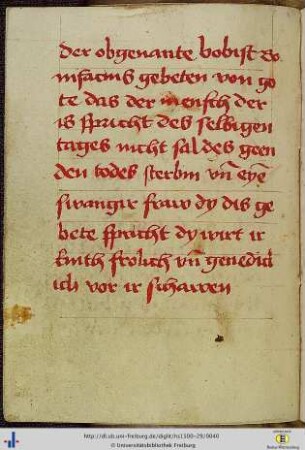 der obgenante bobist Bo
nifacius gebeten von go
te das der mensch der
is spricht des selbigen
tages nicht sal des geen
den todes sterbin vn̄ eyē
swangir fraw dy dis ge
bete spricht dy wirt ir
kinth frolich vn̄ genedic
lich vor ir schawen
http://dl.ub.uni-freiburg.de/diglit/hs1500-29/0040
© Universitätsbibliothek Freiburg